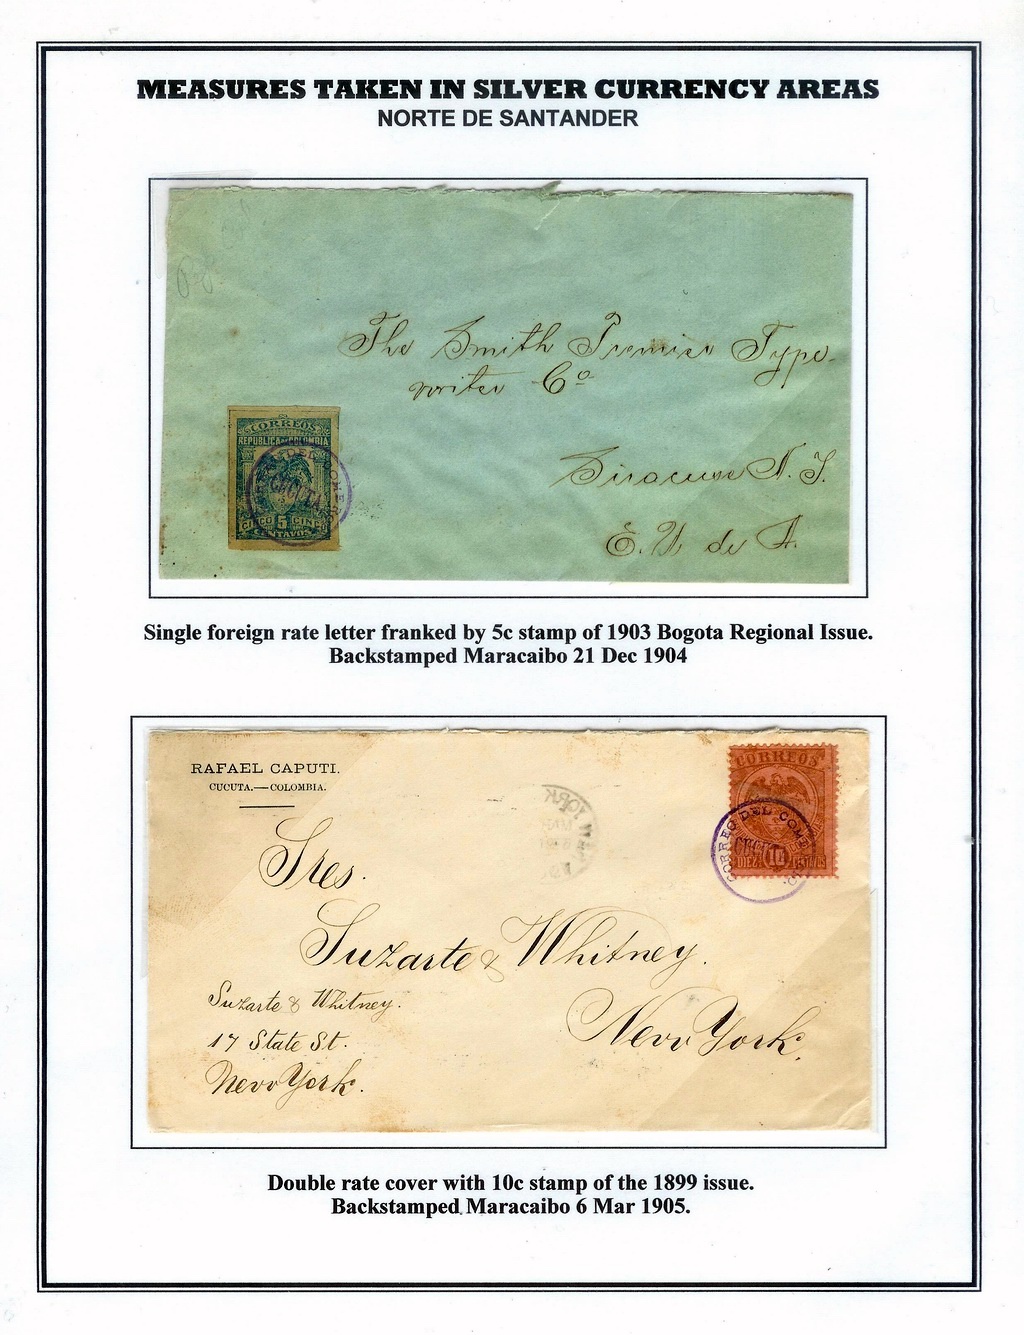 MEASURES TAKEN IN SILVER CURRENCY AREAS
NORTE DE SANTANDER
The Smith Premier Type-
writer Co
Siracuse N.Y.
E. U de A.
CORREOS
REPUBLICA DE COLOMBIA
CINCO 5 CINCO
CENTAVOS
CUCUTA
Single foreign rate letter franked by 5c stamp of 1903 Bogota Regional Issue.
Backstamped Maracaibo 21 Dec 1904
RAFAEL CAPUTI.
CUCUTA.—COLOMBIA.
CORREOS
CORREO DEL COMERCIO.
DIEZ 10
NEW YORK
Sres.
Suzarte & Whitney.
New York.
Suzarte & Whitney.
17 State St.
New York.
Double rate cover with 10c stamp of the 1899 issue.
Backstamped Maracaibo 6 Mar 1905.